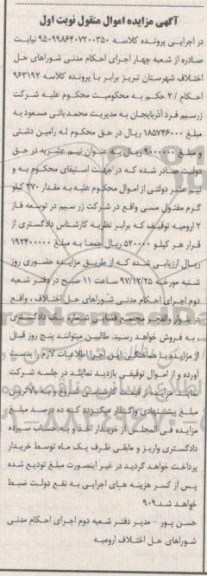 آگهی مزایده اموال منقول نوبت اول
در اجرایی پرونده کلاسه ۹۵۰۹۹۸۶۴۰۷۲۰۰۳۵۰ نیابت
صادره از شعبه چهار اجرای احکام مدنی شوراهای حل
اختلاف شهرستان تبریز برابر با پرونده کلاسه ۹۶۳۱۹۲
احکام / ۲ حکم به محکومیت محکوم علیه شرکت
زرسیم فرد آذربایجان به مدیریت محمد بانی مسعود به
مبلغ ۱۸۵۷۴۶۰۰۰ ریال در حق محکوم له رامین دشتی
و مبلغ ۹۰۰۰۰۰۰ ریال به عنوان نیم عشریه در حق
دولت صادر شده که در جهت استیفای محکوم به و
نیم عشر دولتی از اموال محکوم علیه به مقدار ۳۷۰ کیلو
گرم مفتول مسی واقع در شرکت زر سیم در توسعه فاز
۲ ارومیه توقیف که برابر نظریه کارشناس دادگستری از
قرار هر کیلو ۵۲۰۰۰۰ ریال جمعا به مبلغ ۱۹۲۴۰۰۰۰۰
ریال ارزیابی شده که از طریق مزایده حضوری روز
شنبه مورخه ۹۷/۱۲/۲۵ ساعت ۱۱ صبح در دفتر شعبه
دوم اجرای احکام مدنی شوراهای حل اختلاف، واقع
در مجتمع قضایی شماره یک دادگستری
به فروش خواهد رسید. طالبین میتوانند پنج روز قبل
از مزایده با هماهنگی این اجرا اطلاعات لازم را بدست
آورده و از اموال توقیفی بازدید نمایند در جلسه شرکت
نمایند. مزایده از قیمت کارشناسی شروع و به بالاترین
مبلغ پیشنهادی واگذار میگردد که ده درصد مبلغ
مزایده فی المجلس از خریدار اخذ و به حساب سپرده
دادگستری واریز و مابقی ظرف یک ماه توسط خریدار
پرداخت خواهد گردید در غیر اینصورت مبلغ تودیع شده
پس از کسر هزینه های اجرایی به نفع دولت ضبط
خواهد شد. ۹۰۹
حسن پور - مدیر دفتر شعبه دوم اجرای احکام مدنی
شوراهای حل اختلاف ارومیه